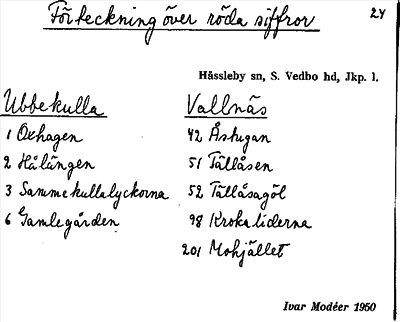 Förteckning över röda siffror
24
Hässleby sn, S. Vedbo hd, Jkp. l.
Ubbekulla
1 Oxhagen
2 Hålängen
3 Sammekullalyckorna
6 Gamlegården
Vallnäs
42 Åstugan
51 Tållåsen
52 Tållåsagöl
98 Krokaliderna
201 Mohjället
Ivar Modéer 1950